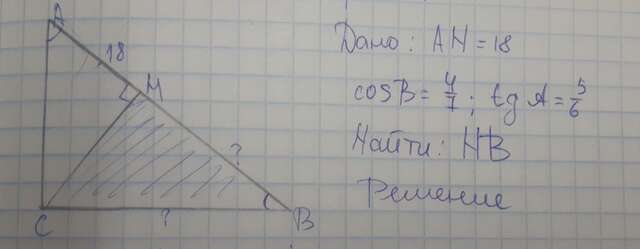 A
18
H
?
C
?
B
Дано: AH = 18
cosB = 4/7 ; tg A = 5/6
Найти: HB
Решение